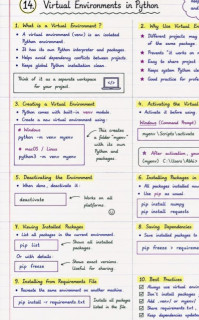 14. Virtual Environments in Python
1. What is a Virtual Environment ?
A virtual environment (venv) is an isolated
Python environment.
It has its own Python interpreter and packages.
Helps avoid dependency conflicts between projects.
Keeps global Python installation clean.
Think of it as a separate workspace
for your project.
2. Why Use Virtual En
Different projects may
of the same package.
Prevents "it works on m
Easy to share project
Keeps system Python cle
Good practice for profe
3. Creating a Virtual Environment
Python comes with built-in venv module.
Create a new virtual environment using:
Windows
python -m venv myenv
macOS / Linux
python3 -m venv myenv
This creates
a folder "myenv"
with its own
Python and
packages.
4. Activating the Virtua
Activate it before worki
Windows (Command Prompt)
myenv\Scripts\activate
After activation, you
(myenv) C:\Users\Abhi>
5. Deactivating the Environment
When done, deactivate it:
deactivate
Works on all
platforms.
6. Installing Packages in
All packages installed now
Use pip as usual.
pip install numpy
pip install requests
7. Viewing Installed Packages
List all packages in the current environment.
pip list
Show all installed
packages.
Or with details:
pip freeze
Shows exact versions.
Useful for sharing.
8. Saving Dependencies
Save installed packages to
pip freeze > requireme
9. Installing from Requirements File
Recreate the same environment on another machine.
pip install -r requirements.txt
Installs all packages
listed in the file.
10. Best Practices
Always use virtual environ
Don't install packages
Add .venv/ or myenv/
Share requirements.txt
Keep dependencies update